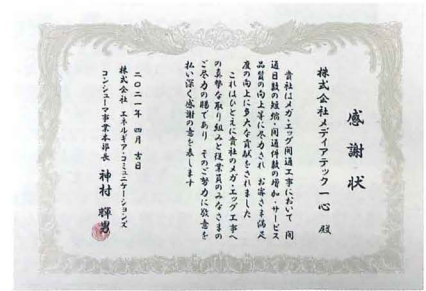 感謝状
株式会社メディアテック一心 殿
貴社はメガ・エッグ開通工事において 開
通日数の短縮・開通件数の増加・サービス
品質の向上等に尽力され お客さま満足
度の向上に多大な貢献をされました
これはひとえに貴社のメガ・エッグ工事へ
の真摯な取り組みと従業員のみなさまの
ご尽力の賜であり そのご努力に敬意を
払い深く感謝の意を表します
二〇二一年 四月 吉日
株式会社 エネルギア・コミュニケーションズ
コンシューマ事業本部長 神村 輝男